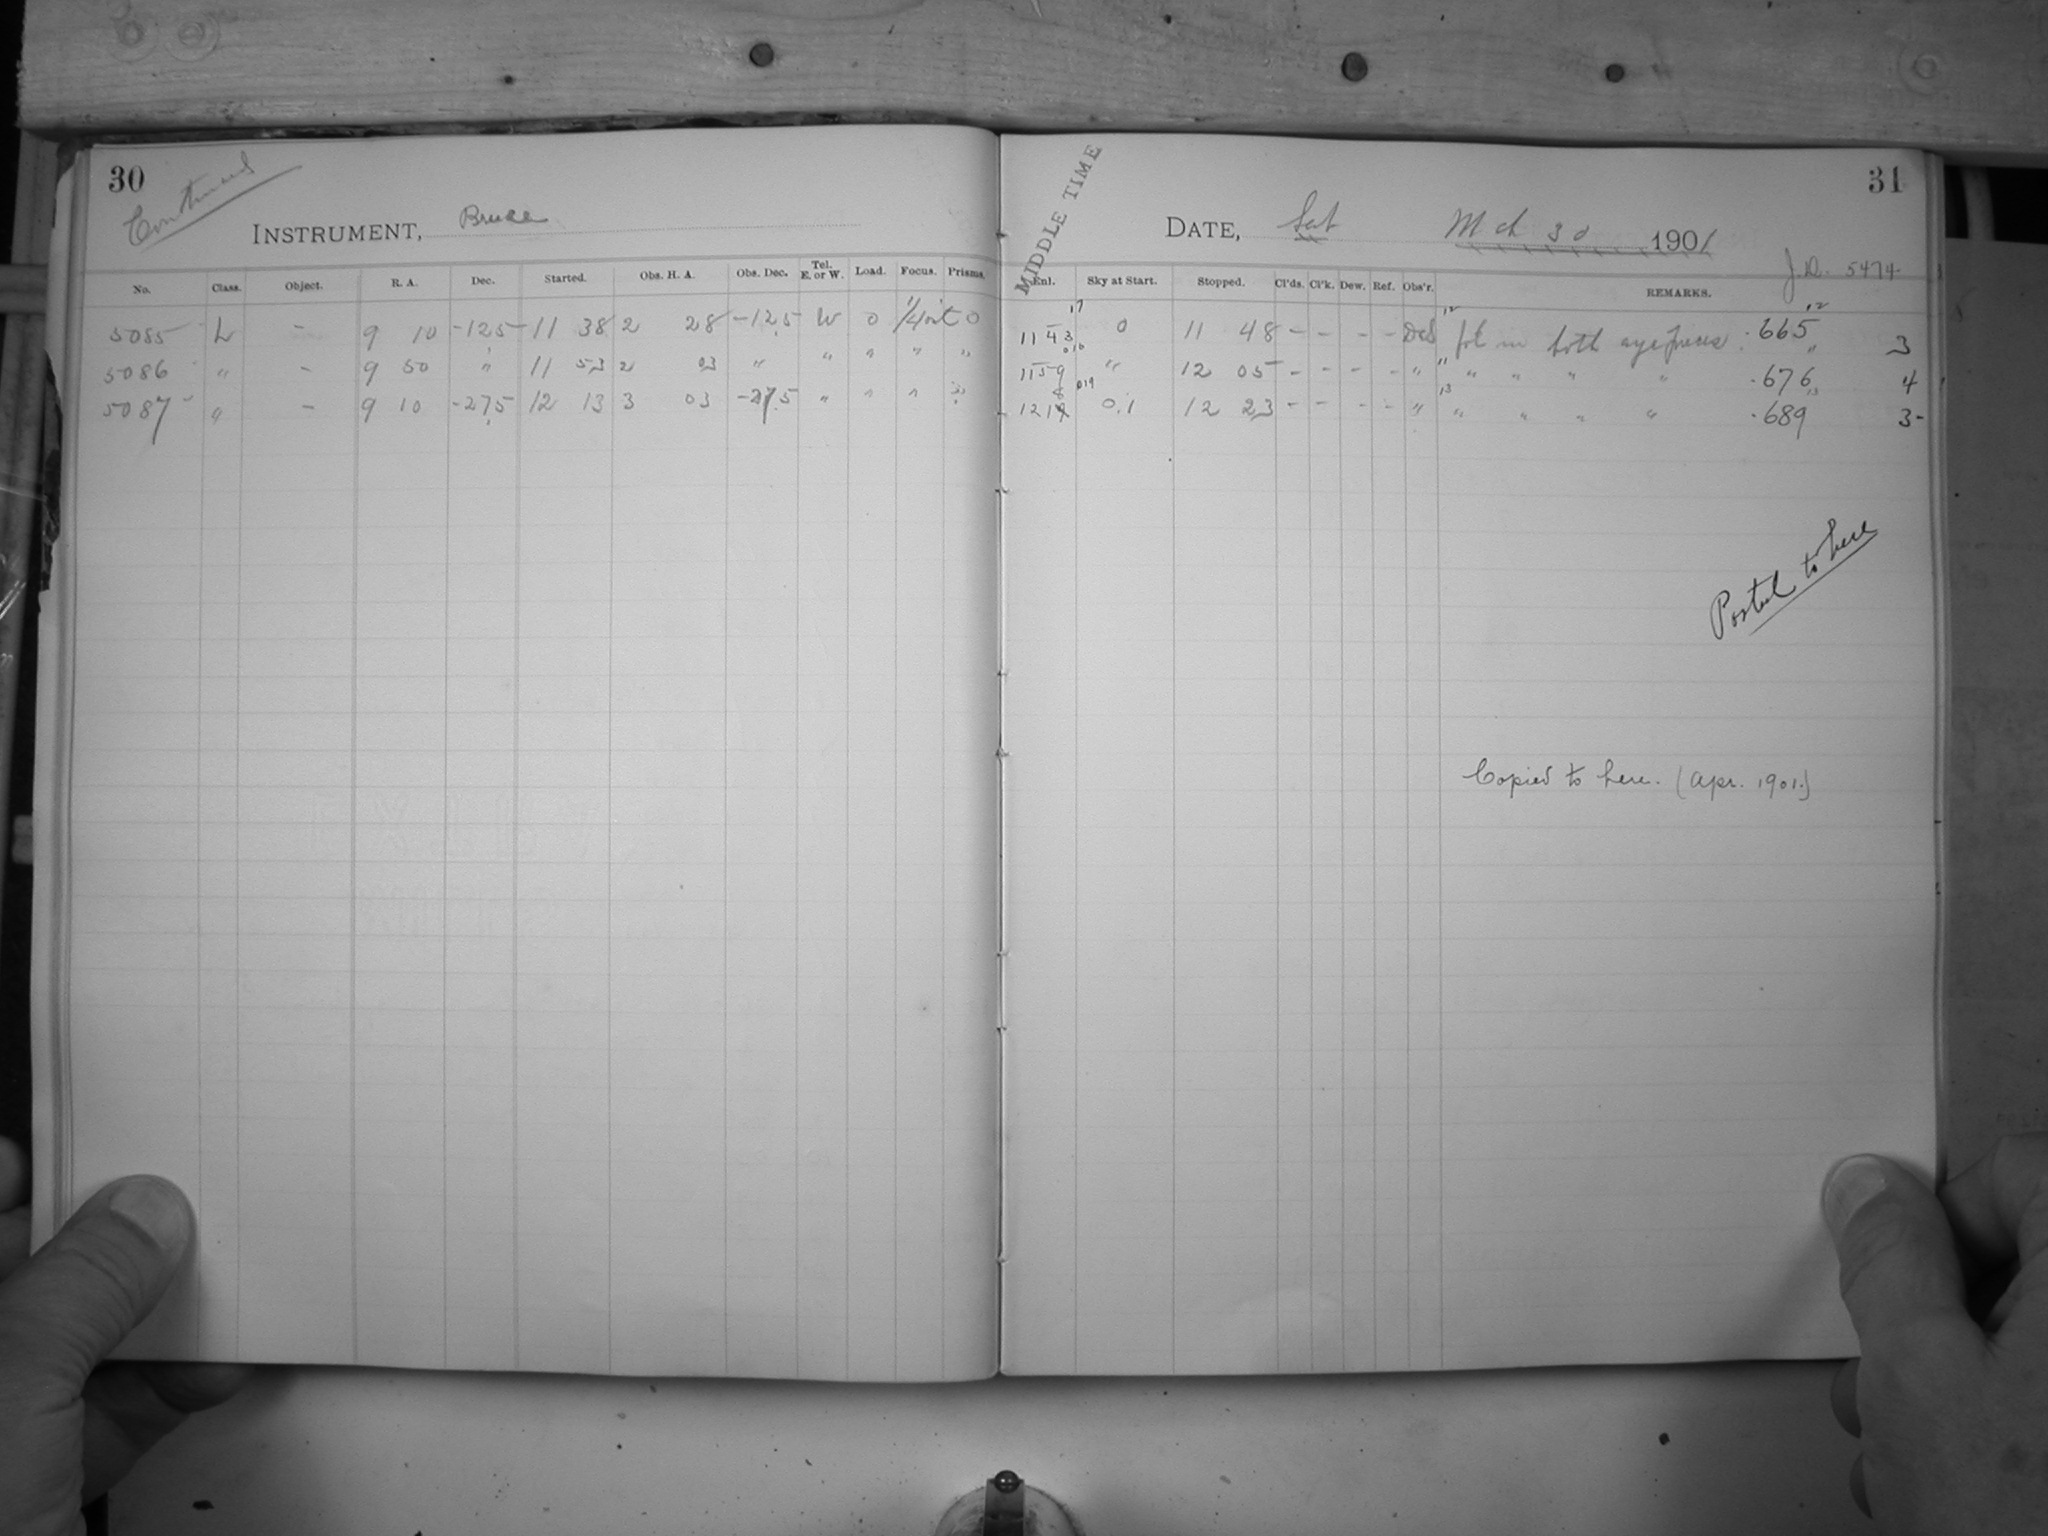 30
Continued
INSTRUMENT, Bruce
No. Class. Object. R. A. Dec. Started. Obs. H. A. Obs. Dec. Tel. E. or W. Load. Focus. Prisms.
5085 L - 9 10 -12.5 11 38 2 28 -12.5 W 0 0
5086 " - 9 50 " 11 53 2 03 " " " " "
5087 " - 9 10 -27.5 12 13 3 03 -27.5 " " " "
31
MIDDLE TIME
DATE, Sat Mch 30 1901
J.D. 5474
Enl. Sky at Start. Stopped. Cl'ds. Cl'k. Dew. Ref. Obs'r. REMARKS.
17 12 12
11 43 0 11 48 - - - - in both eyepieces .665 3
016 " "
11 59 " 12 05 - - - - " " " " " .676 4
8 019 13 13
12 19 0.1 12 23 - - - - " " " " " .689 3-
Posted to here
Copied to here. (Apr. 1901.)